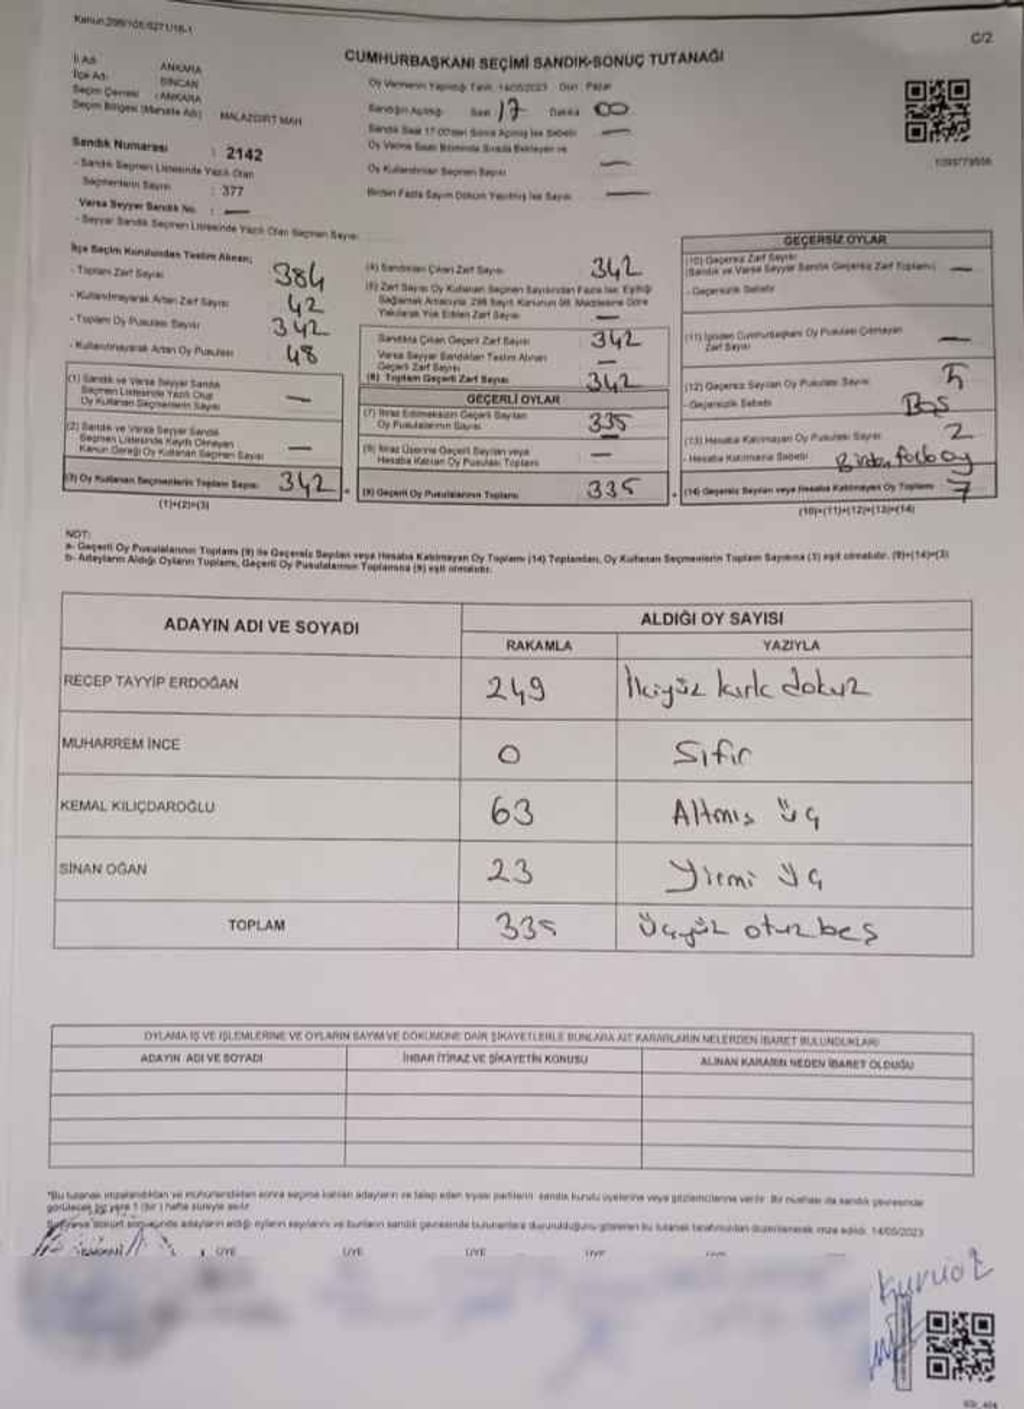 Kanun:298/105/6271/16-1
C/2
CUMHURBAŞKANI SEÇİMİ SANDIK SONUÇ TUTANAĞI
İl Adı : ANKARA
İlçe Adı : SİNCAN
Seçim Çevresi : ANKARA
Seçim Bölgesi (Mahalle Adı) : MALAZGİRT MAH
Sandık Numarası : 2142
- Sandık Seçmen Listesinde Yazılı Olan
Seçmenlerin Sayısı : 377
Varsa Seyyar Sandık No : —
- Seyyar Sandık Seçmen Listesinde Yazılı Olan Seçmen Sayısı
Oy Vermenin Yapıldığı Tarih: 14/05/2023 Gün: Pazar
Sandığın Açıldığı Saat 17 Dakika 00
Sandık Saat 17:00'den Sonra Açılmış İse Sebebi —
Oy Verme Saati Bitiminde Sırada Bekleyen ve
Oy Kullandırılan Seçmen Sayısı —
Birden Fazla Sayım Döküm Yapılmış İse Sayısı —
İlçe Seçim Kurulundan Teslim Alınan;
- Toplam Zarf Sayısı 384
- Kullanılmayarak Artan Zarf Sayısı 42
- Toplam Oy Pusulası Sayısı 342
- Kullanılmayarak Artan Oy Pusulası 48
(1) Sandık ve Varsa Seyyar Sandık
Seçmen Listesinde Yazılı Olup
Oy Kullanan Seçmenlerin Sayısı —
(2) Sandık ve Varsa Seyyar Sandık
Seçmen Listesinde Kayıtlı Olmayan
Kanun Gereği Oy Kullanan Seçmen Sayısı —
(3) Oy Kullanan Seçmenlerin Toplam Sayısı 342
(1)+(2)=(3)
(4) Sandıktan Çıkan Zarf Sayısı 342
(5) Zarf Sayısı Oy Kullanan Seçmen Sayısından Fazla İse, Eşitliği
Sağlamak Amacıyla 298 Sayılı Kanunun 98. Maddesine Göre
Yakılarak Yok Edilen Zarf Sayısı —
Sandıkta Çıkan Geçerli Zarf Sayısı 342
Varsa Seyyar Sandıktan Teslim Alınan
Geçerli Zarf Sayısı —
(6) Toplam Geçerli Zarf Sayısı 342
GEÇERLİ OYLAR
(7) İtiraz Edilmeksizin Geçerli Sayılan
Oy Pusulalarının Sayısı 335
(8) İtiraz Üzerine Geçerli Sayılan veya
Hesaba Katılan Oy Pusulası Toplamı —
(9) Geçerli Oy Pusulalarının Toplamı 335
GEÇERSİZ OYLAR
(10) Geçersiz Zarf Sayısı
(Sandık ve Varsa Seyyar Sandık Geçersiz Zarf Toplamı) —
- Geçersizlik Sebebi
(11) İçinden Cumhurbaşkanı Oy Pusulası Çıkmayan
Zarf Sayısı —
(12) Geçersiz Sayılan Oy Pusulası Sayısı 5
- Geçersizlik Sebebi Boş
(13) Hesaba Katılmayan Oy Pusulası Sayısı 2
- Hesaba Katılmama Sebebi Birden fazla oy
(14) Geçersiz Sayılan veya Hesaba Katılmayan Oy Toplamı 7
(10)+(11)+(12)+(13)=(14)
NOT:
a- Geçerli Oy Pusulalarının Toplamı (9) ile Geçersiz Sayılan veya Hesaba Katılmayan Oy Toplamı (14) Toplamları, Oy Kullanan Seçmenlerin Toplam Sayısına (3) eşit olmalıdır. (9)+(14)=(3)
b- Adayların Aldığı Oyların Toplamı, Geçerli Oy Pusulalarının Toplamına (9) eşit olmalıdır.
ADAYIN ADI VE SOYADI ALDIĞI OY SAYISI
RAKAMLA YAZIYLA
RECEP TAYYİP ERDOĞAN 249 İkiyüz kırk dokuz
MUHARREM İNCE 0 Sıfır
KEMAL KILIÇDAROĞLU 63 Altmış üç
SİNAN OĞAN 23 Yirmi üç
TOPLAM 335 Üçyüz otuz beş
OYLAMA İŞ VE İŞLEMLERİNE VE OYLARIN SAYIM VE DÖKÜMÜNE DAİR ŞİKAYETLERLE BUNLARA AİT KARARLARIN NELERDEN İBARET BULUNDUKLARI
ADAYIN ADI VE SOYADI İHBAR İTİRAZ VE ŞİKAYETİN KONUSU ALINAN KARARIN NEDEN İBARET OLDUĞU
*Bu tutanak imzalandıktan ve mühürlendikten sonra seçime katılan adayların ve talep eden siyasi partilerin sandık kurulu üyelerine veya gözlemcilerine verilir. Bir nüshası da sandık çevresinde
görülecek bir yere 1 (bir) hafta süreyle asılır.
14/05/2023
ÜYE ÜYE ÜYE ÜYE